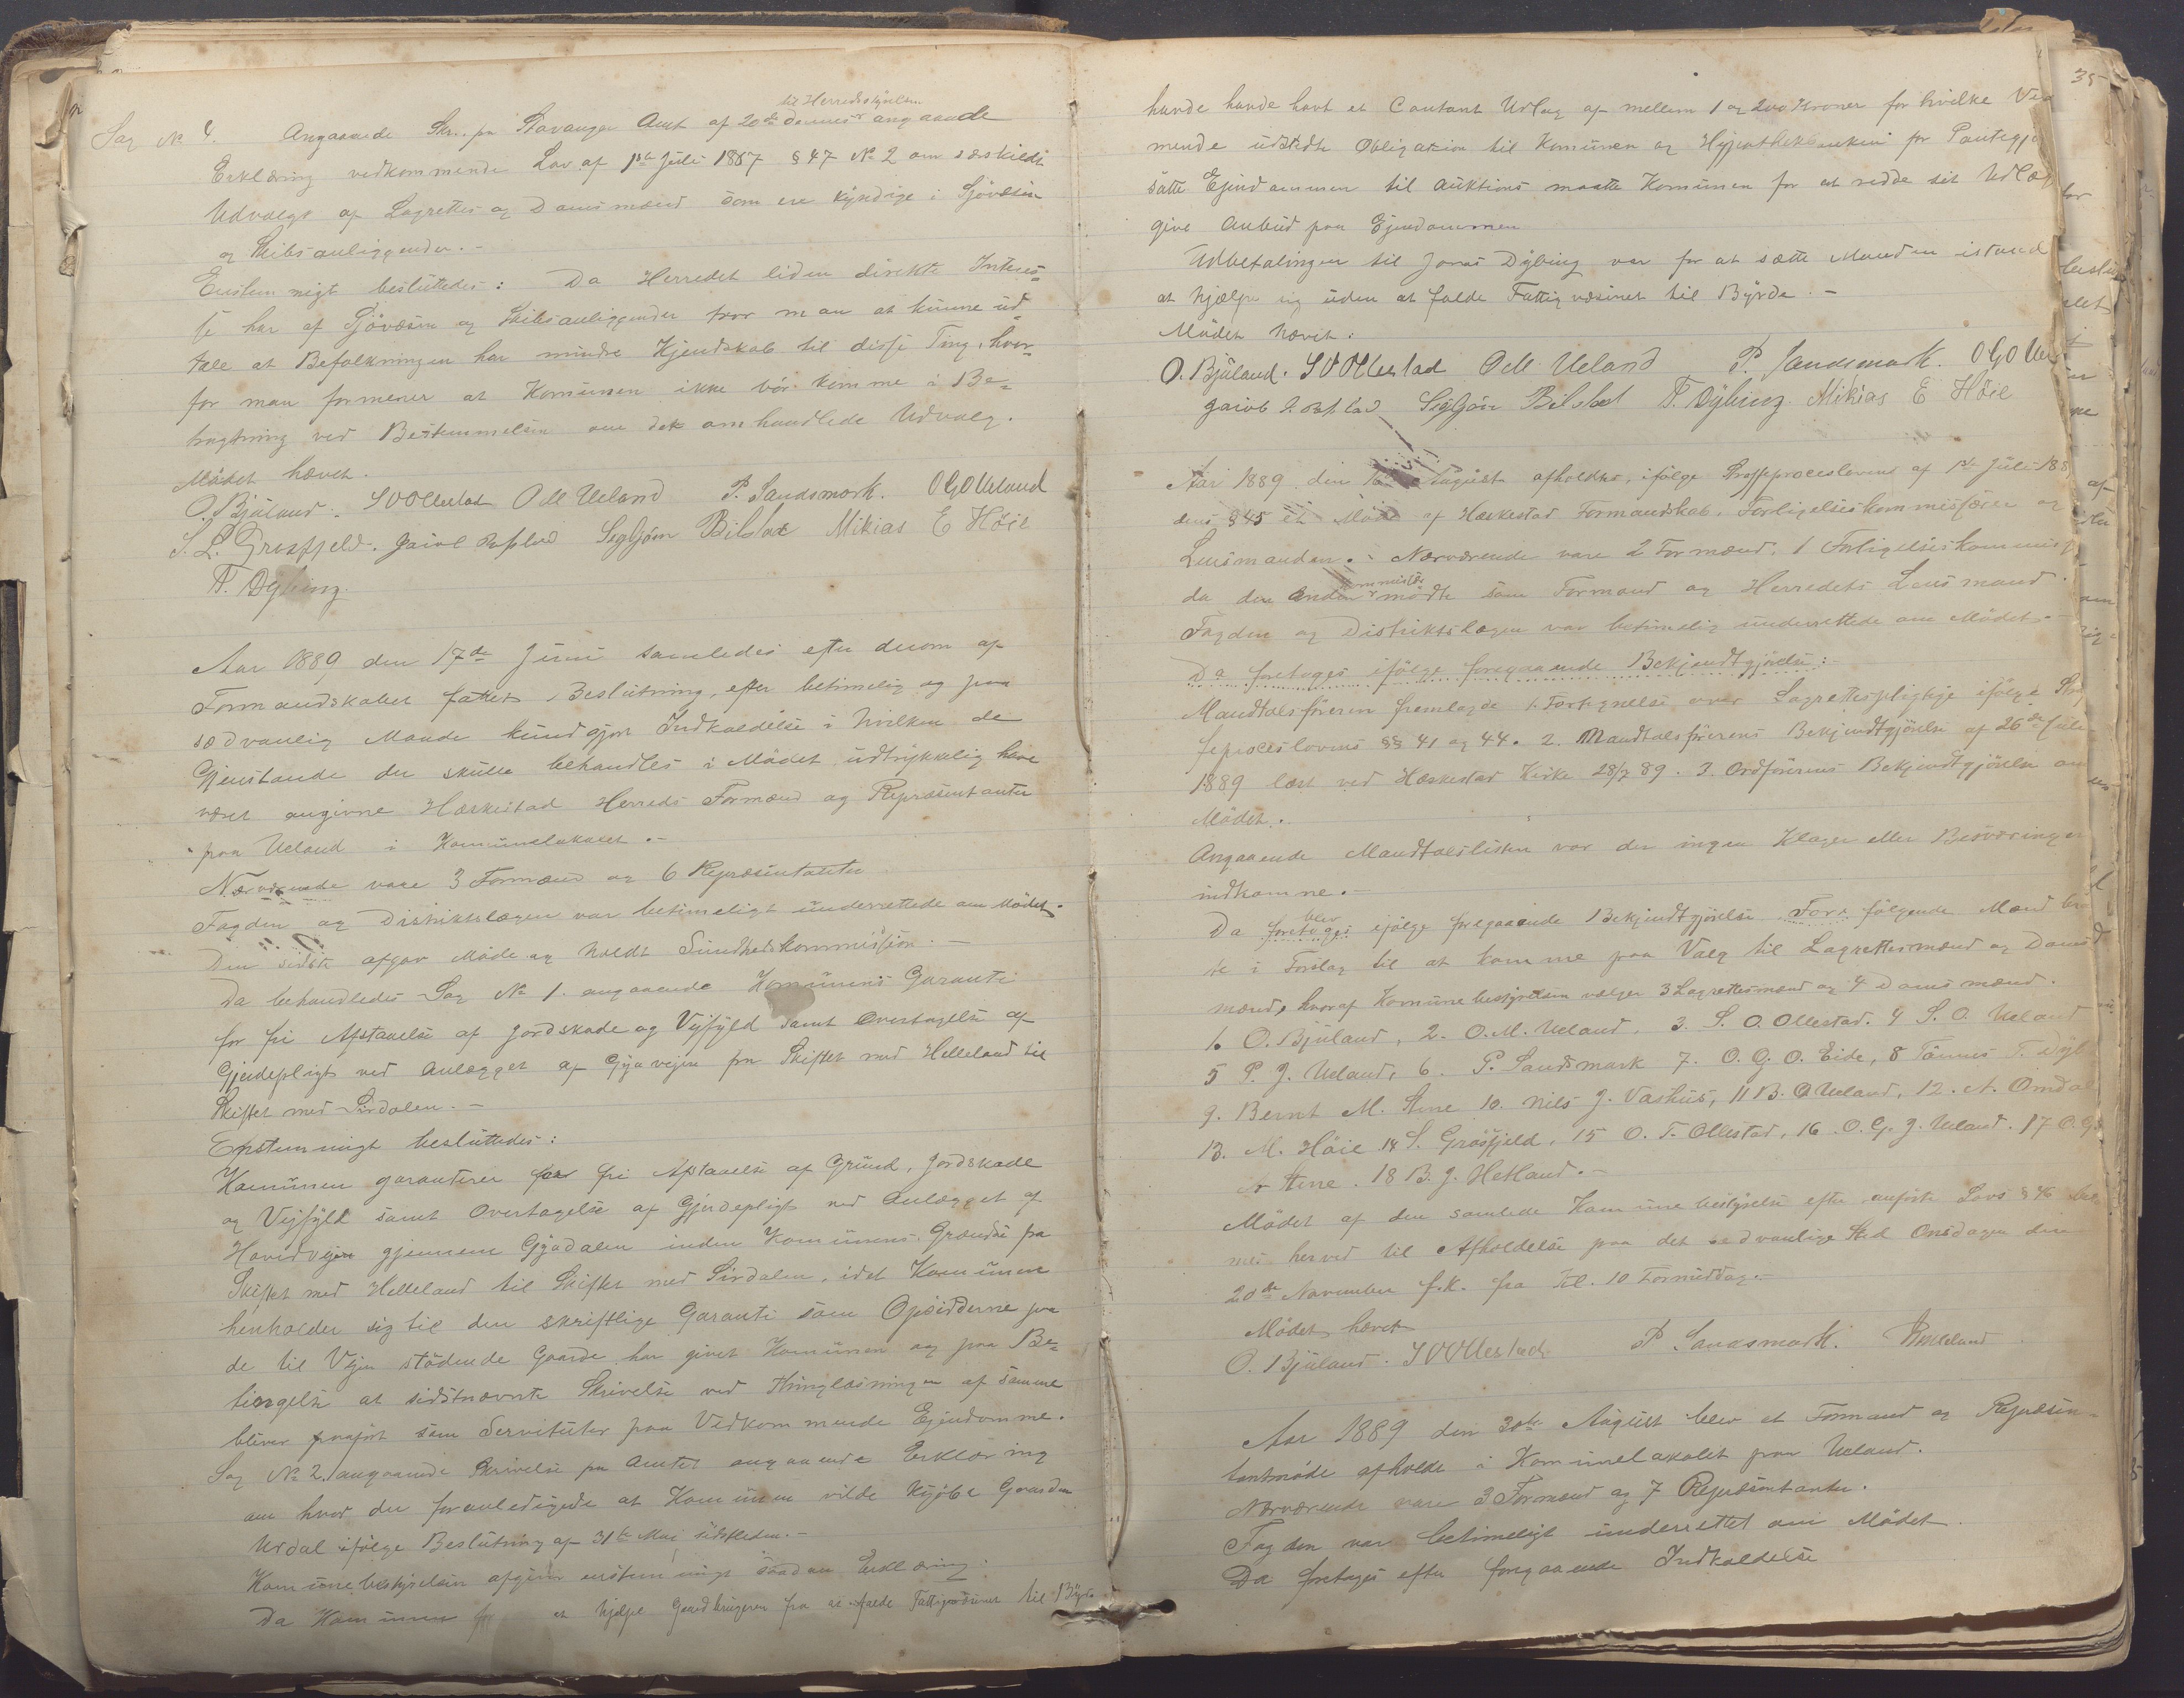 Sag No 4. Angaaende Skr. fra Stavanger Amt af 20de dennes til Herredsstyrelsen angaaende
Erklæring vedkommende Lov af 1ste Juli 1887 § 47 No 2 om særskildt
Udvalgt af Lagrettes og Domsmænd som ere kyndige i Sjövæsen
og Skibsanliggender.-
Enstemmigt besluttedes: Da Herredet liden direkte Interes-
se har af Sjövæsen og Skibsanliggender tror man at kunne ud-
tale at Befolkningen har mindre Kjendskab til disse Ting, hvor-
for man formener at Komunen ikke bör komme i Be-
tragtning ved Bestemmelsen om det omhandlede Udvalg.
Mödet hævet.
O. Bjuland. S O Ollestad O M Ueland P. Sandsmark. O G O Ueland
S. L. Grøsfjeld. Seglgjörn Bilstad Mikias E Höie
T. Dybing.
Aar 1889 den 17de Juni samledes efter derom af
Formandskabet fattet Beslutning, efter betimelig og paa
sædvanlig Maade kundgjort Indkaldelse i hvilken de
Gjenstande der skulle behandles i Mödet udtrykkelig have
været angivne Hæskestad Herreds Formænd og Repræsentanter
paa Ueland i Komunelokalet.-
Nærværende vare 3 Formænd og 6 Repræsentanter
Fogden og Distriktslægen var betimeligt underrettede om Mödet.
Den sidste afgav Möde og holdt Sundhedskommission.-
Da behandledes Sag No 1. angaaende Komunens Garanti
for fri Afstaaelse af Jordskade og Vejfyld samt Overtagelse af
Gjerdepligt ved Anlægget af Gyavejen fra Skiftet med Helleland til
Skiftet med Sirdalen.-
Enstemmigt besluttedes:
Komunen garanterer for fri Afstaaelse af Grund, Jordskade
og Vejfyld samt Overtagelse af Gjerdepligt ved Anlægget af
Hovedvejen gjennem Gyadalen inden Komunens Grændse fra
Skiftet med Helleland til Skiftet med Sirdalen, idet Komunen
henholder sig til den skriftlige Garanti som Opsidderne paa
de til Vejen stödende Gaarde har givet Komunen og paa Be-
tingelse at sidstnævnte Skrivelse ved Thinglæsningen af samme
bliver paaført som Servituter paa Vedkommende Ejendomme.
Sag No 2. angaaende Skrivelse fra Amtet angaaende Erklæring
om hvad der foranledigede at Komunen vilde kjöbe Gaarden
Urdal ifölge Beslutning af 31te Mai sidstleden.-
Komunebestyrelsen afgiver enstemmigt saadan Erklæring:
Da Komunen for at hjælpe Gaardbrugeren fra at falde Fattigvæsenet til Byrde
35
havde havt et Contant Udlag af mellem 1 og 200 Kroner for hvilke Ved
mende udstedte Obligation til Komunen og Hypothekbanken for Pantegje
satte Ejendommen til Auktions maatte Komunen for at redde sit Udlæg
give Anbud paa Ejendommen
Udbetalingen til Jonas Dybing var for at sætte Manden istand
at hjælpe sig uden at falde Fattigvæsenet til Byrde.-
Mödet hævet:
O. Bjuland. S O Ollestad O M Ueland P. Sandsmark. O G O Uel
Seglgjörn Bilstad T. Dybing Mikias E Höie
Aar 1889 den 16de August afholdtes, ifölge Straffeproceslovens af 1ste Juli 188
dens § 45 et Möde af Hæskestad Formandskab, Forligelseskommissærer og
Lensmanden. Nærværende vare 2 Formænd, 1 Forligelseskommiss
da den Anden kommissær mödte som Formand og Herredets Lensmand.
Fogden og Distriktslægen var betimelig underrettede om Mödet.-
Da foretoges ifölge foregaaende Bekjendtgjörelse:-
Mandtalsföreren fremlagde 1. Fortegnelse over Lagrettespligtige ifölge Straf
feproceslovens §§ 41 og 44. 2. Mandtalsförerens Bekjendtgjörelse af 26de Juli
1889 læst ved Hæskestad Kirke 28/7 89. 3. Ordförerens Bekjendtgjörelse om
Mödet.
Angaaende Mandtalslisten var der ingen Klager eller Besværinger
indkomne.-
Da foretoges blev ifölge foregaaende Bekjendtgjörelse fore fölgende Mænd bra
te i Forslag til at komme paa Valg til Lagrettesmænd og Doms
mænd, hvoraf Komunebestyrelsen vælger 3 Lagrettesmænd og 4 Domsmænd.
1. O. Bjuland, 2. O. M. Ueland, 3. S. O. Ollestad. 4 S. O. Ueland
5 P. J. Ueland, 6. P. Sandsmark 7. O. G. O. Eide, 8 Tönnes T. Dyb
9. Bernt M. Stene 10. Nils J. Vashus, 11 B. O Ueland, 12. A. Omdal
13. M. Höie 14 S. Grösfjeld, 15 O. T. Ollestad, 16. O. G. J. Ueland. 17 O. G.
Stene. 18 B. J. Hetland.-
Mödet af den samlede Komunebestyrelse efter anförte Lovs § 46 be
mes herved til Afholdelse paa det sædvanlige Sted Onsdagen den
20de November f.k. fra Kl. 10 Formiddag.-
Mödet hævet
O. Bjuland. S O Ollestad P. Sandsmark.
Aar 1889 den 30te August blev et Formand og Repræsen-
tantmöde afholdt i Komunelokalet paa Ueland.
Nærværende vare 3 Formænd og 7 Repræsentanter.
Fogden var betimeligt underrettet om Mödet.
Da foretoges efter foregaaende Indkaldelse